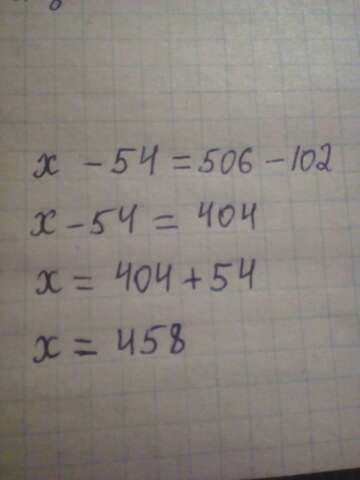 x - 54 = 506 - 102
x - 54 = 404
x = 404 + 54
x = 458